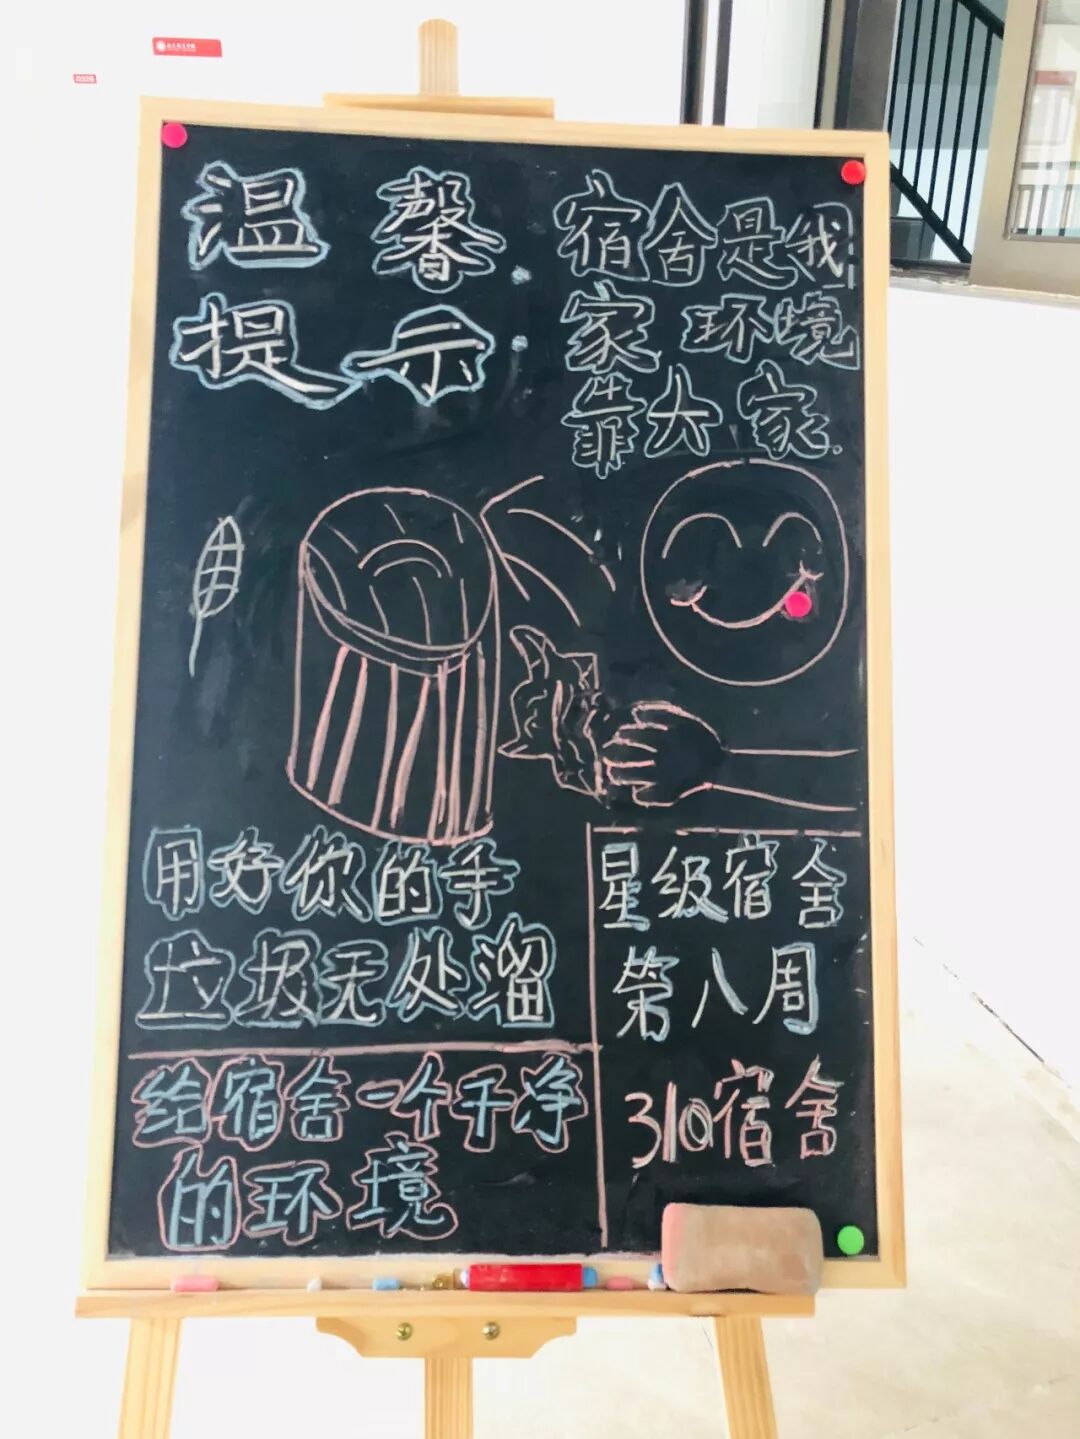 温馨
提示:
宿舍是我
家 环境
靠大家.
用好你的手
垃圾无处溜
星级宿舍
第八周
310宿舍
给宿舍一个干净
的环境